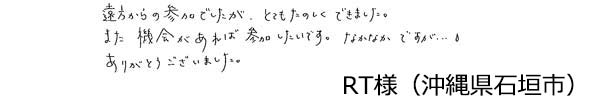 遠方からの参加でしたが、とてもたのしくできました。
また機会があれば参加したいです。なかなかですが…。
ありがとうございました。
RT様（沖縄県石垣市）